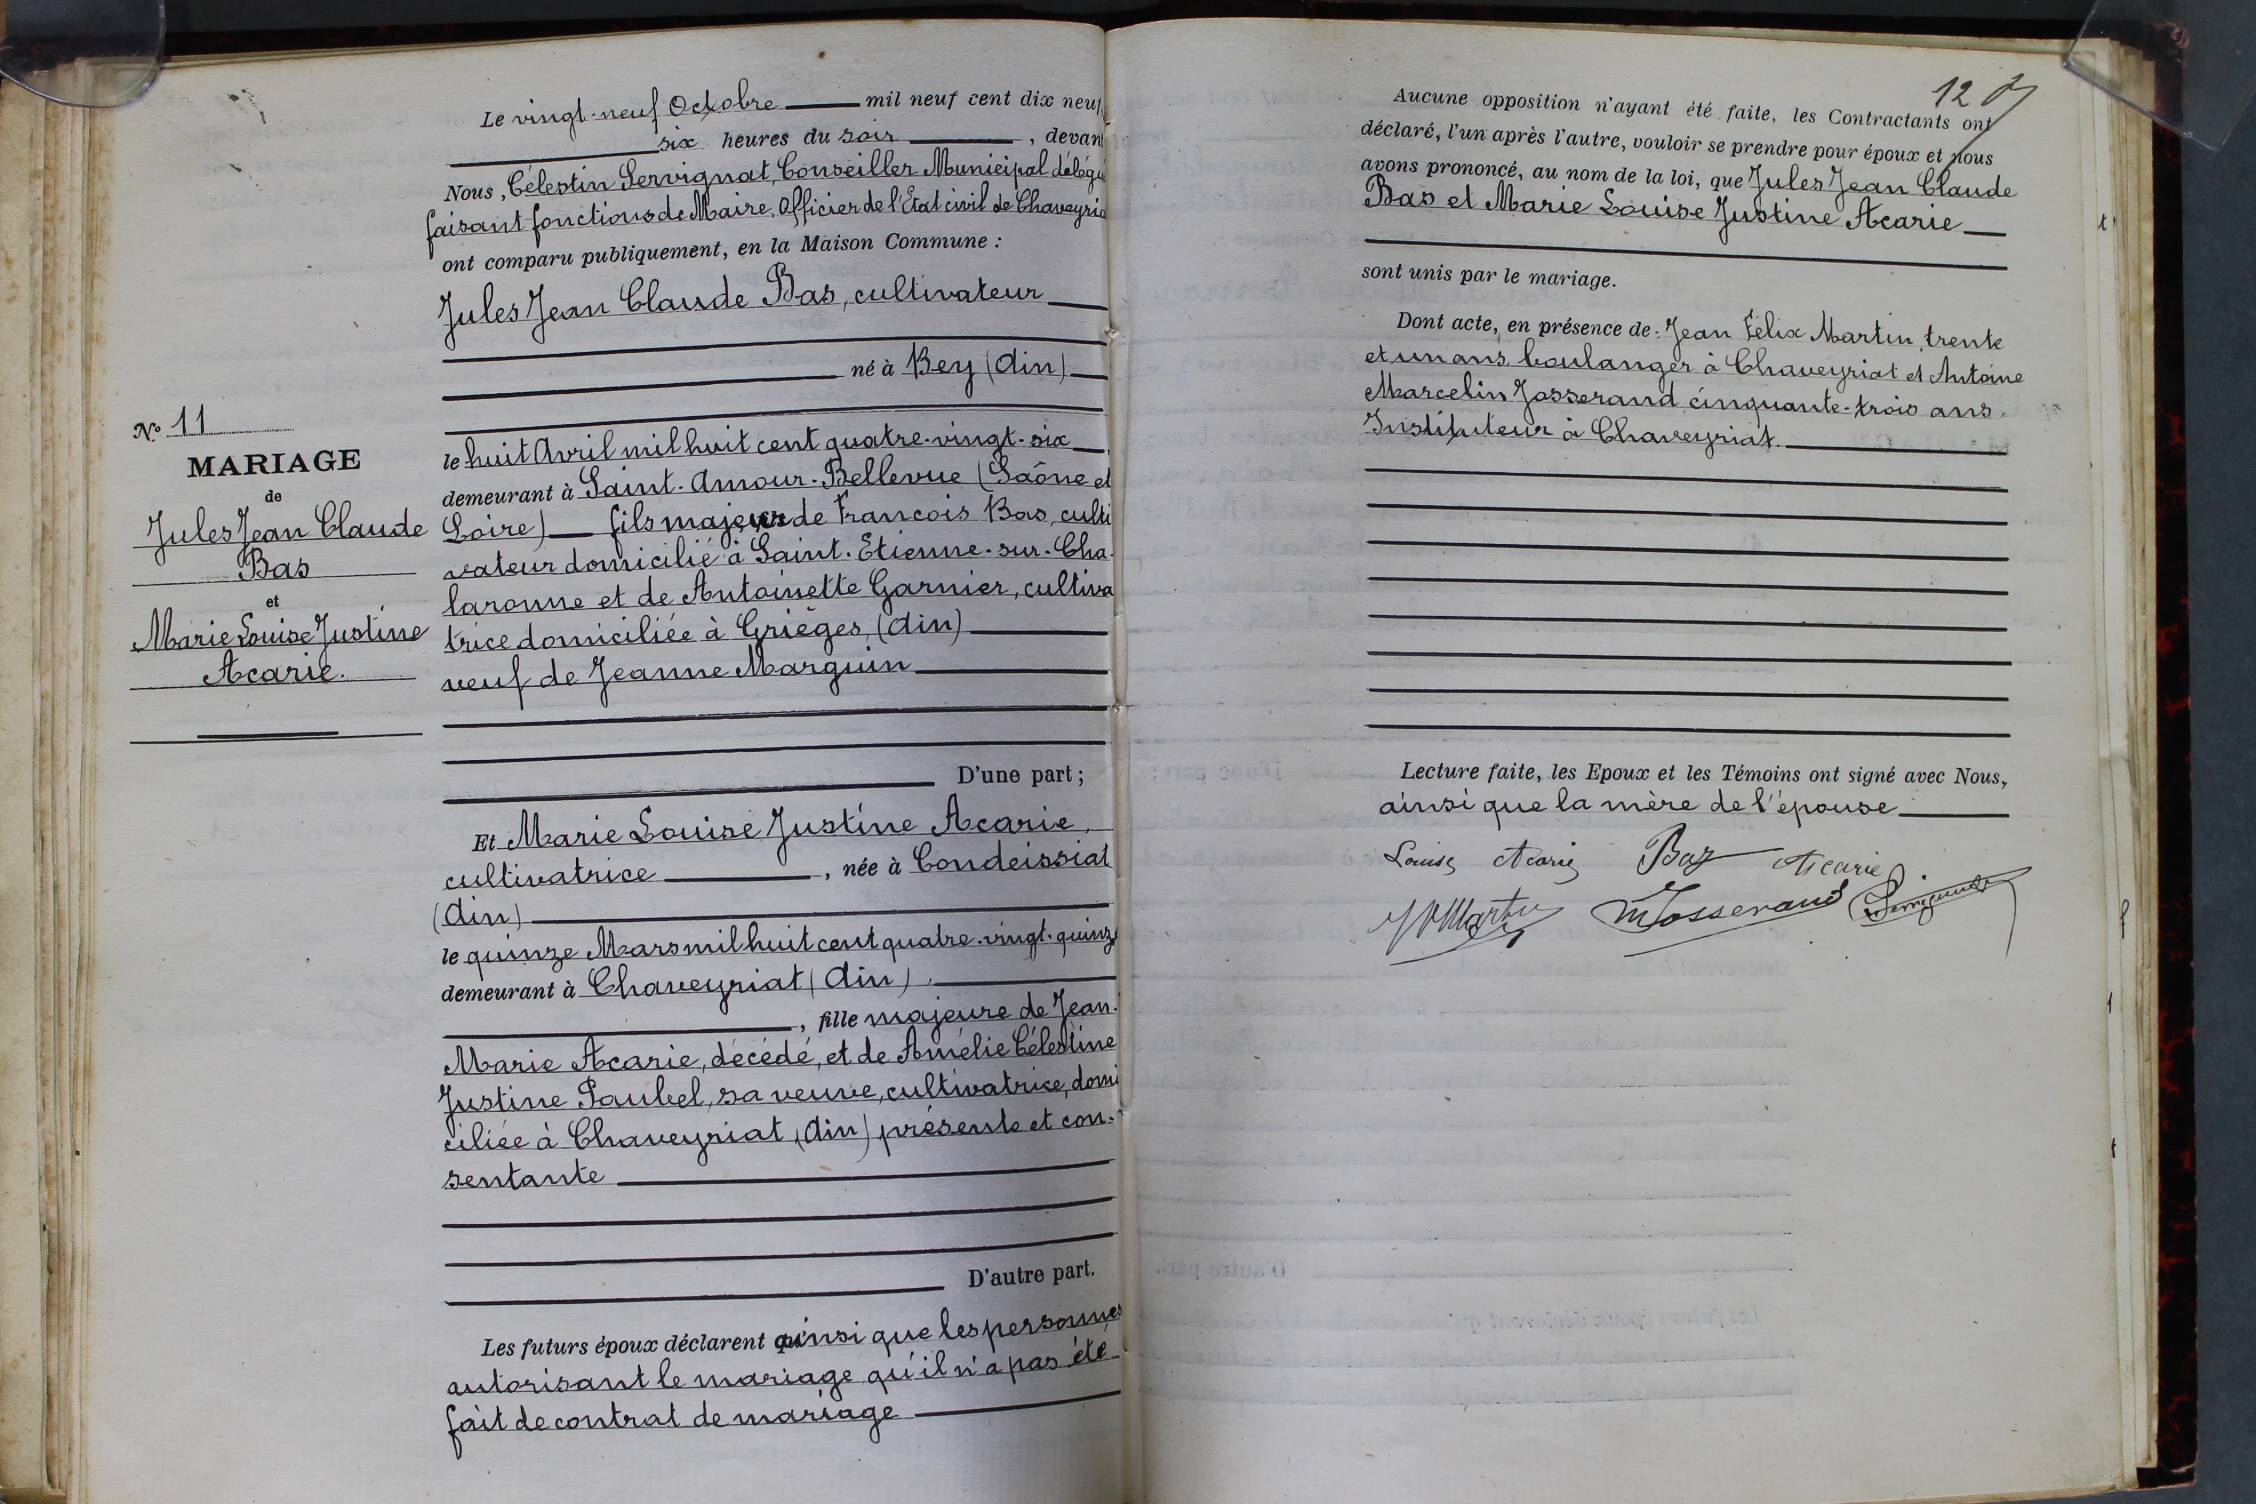 N.º 11
MARIAGE
de
Jules Jean Claude
Bas
et
Marie Louise Justine
Acarie.
Le vingt-neuf Octobre mil neuf cent dix neuf,
six heures du soir , devant
Nous, Célestin Servignat, Conseiller Municipal délégué
faisant fonctions de Maire, Officier de l'Etat civil de Chaveyriat
ont comparu publiquement, en la Maison Commune :
Jules Jean Claude Bas, cultivateur
né à Bey (Ain)
le huit Avril mil huit cent quatre-vingt-six
demeurant à Saint-Amour-Bellevue (Saône et
Loire) fils majeur de Francois Bas, culti
vateur domicilié à Saint-Etienne-sur-Cha-
laronne et de Antoinette Garnier, cultiva
trice domiciliée à Grièges, (Ain)
veuf de Jeanne Marguin
D'une part ;
Et Marie Louise Justine Acarie,
cultivatrice , née à Condeissiat
(Ain)
le quinze Mars mil huit cent quatre-vingt-quinze
demeurant à Chaveyriat (Ain).
, fille majeure de Jean-
Marie Acarie, décédé, et de Amélie Célestine
Justine Paubel, sa veuve, cultivatrice, domi
ciliée à Chaveyriat, (Ain) présente et con-
sentante
D'autre part.
Les futurs époux déclarent ainsi que les personnes
autorisant le mariage qu'il n'a pas été
fait de contrat de mariage
12
Aucune opposition n'ayant été faite, les Contractants ont
déclaré, l'un après l'autre, vouloir se prendre pour époux et nous
avons prononcé, au nom de la loi, que Jules Jean Claude
Bas et Marie Louise Justine Acarie
sont unis par le mariage.
Dont acte, en présence de Jean Félix Martin, trente
et un ans, boulanger à Chaveyriat et Antoine
Marcelin Josserand, cinquante-trois ans,
Instituteur à Chaveyriat.
Lecture faite, les Epoux et les Témoins ont signé avec Nous,
ainsi que la mère de l'épouse
Louise Acarie Bas Acarie
Martin Josserand Servignat